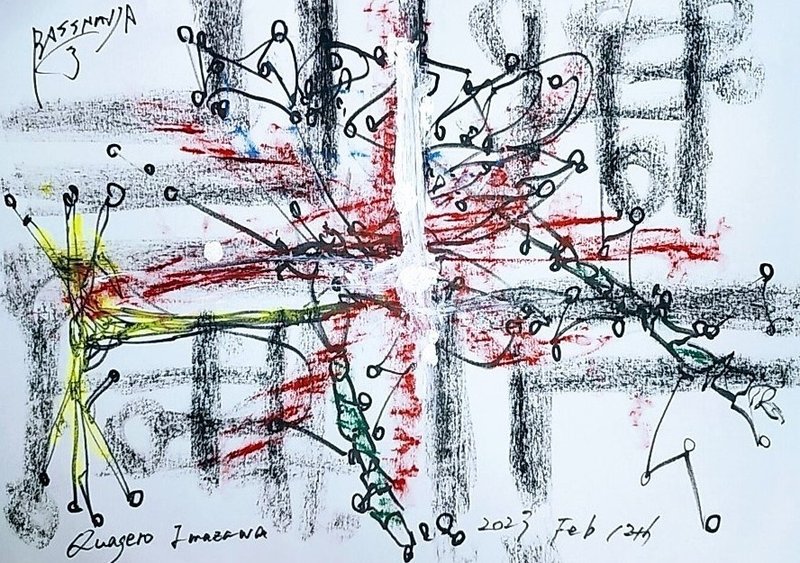 BASSNANJA
3
Quagero Imazawa 2023 Feb 12th